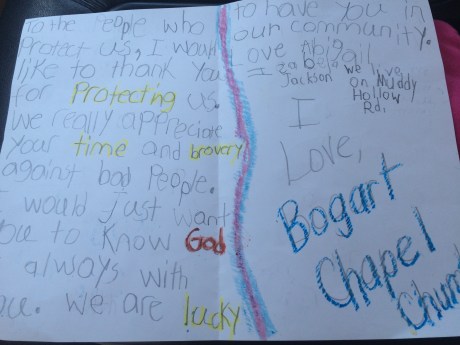 To the People who
Protect us, I would
like to thank you
for Protecting us.
We really appreciate
your time and brovery
against bad People.
I would Just want
you to know God
always with
you. We are lucky
to have you in
our community.
Love Abigail
Izabela
Jackson we live
on Muddy
Hollow
Rd.
I
Love,
Bogart
Chapel